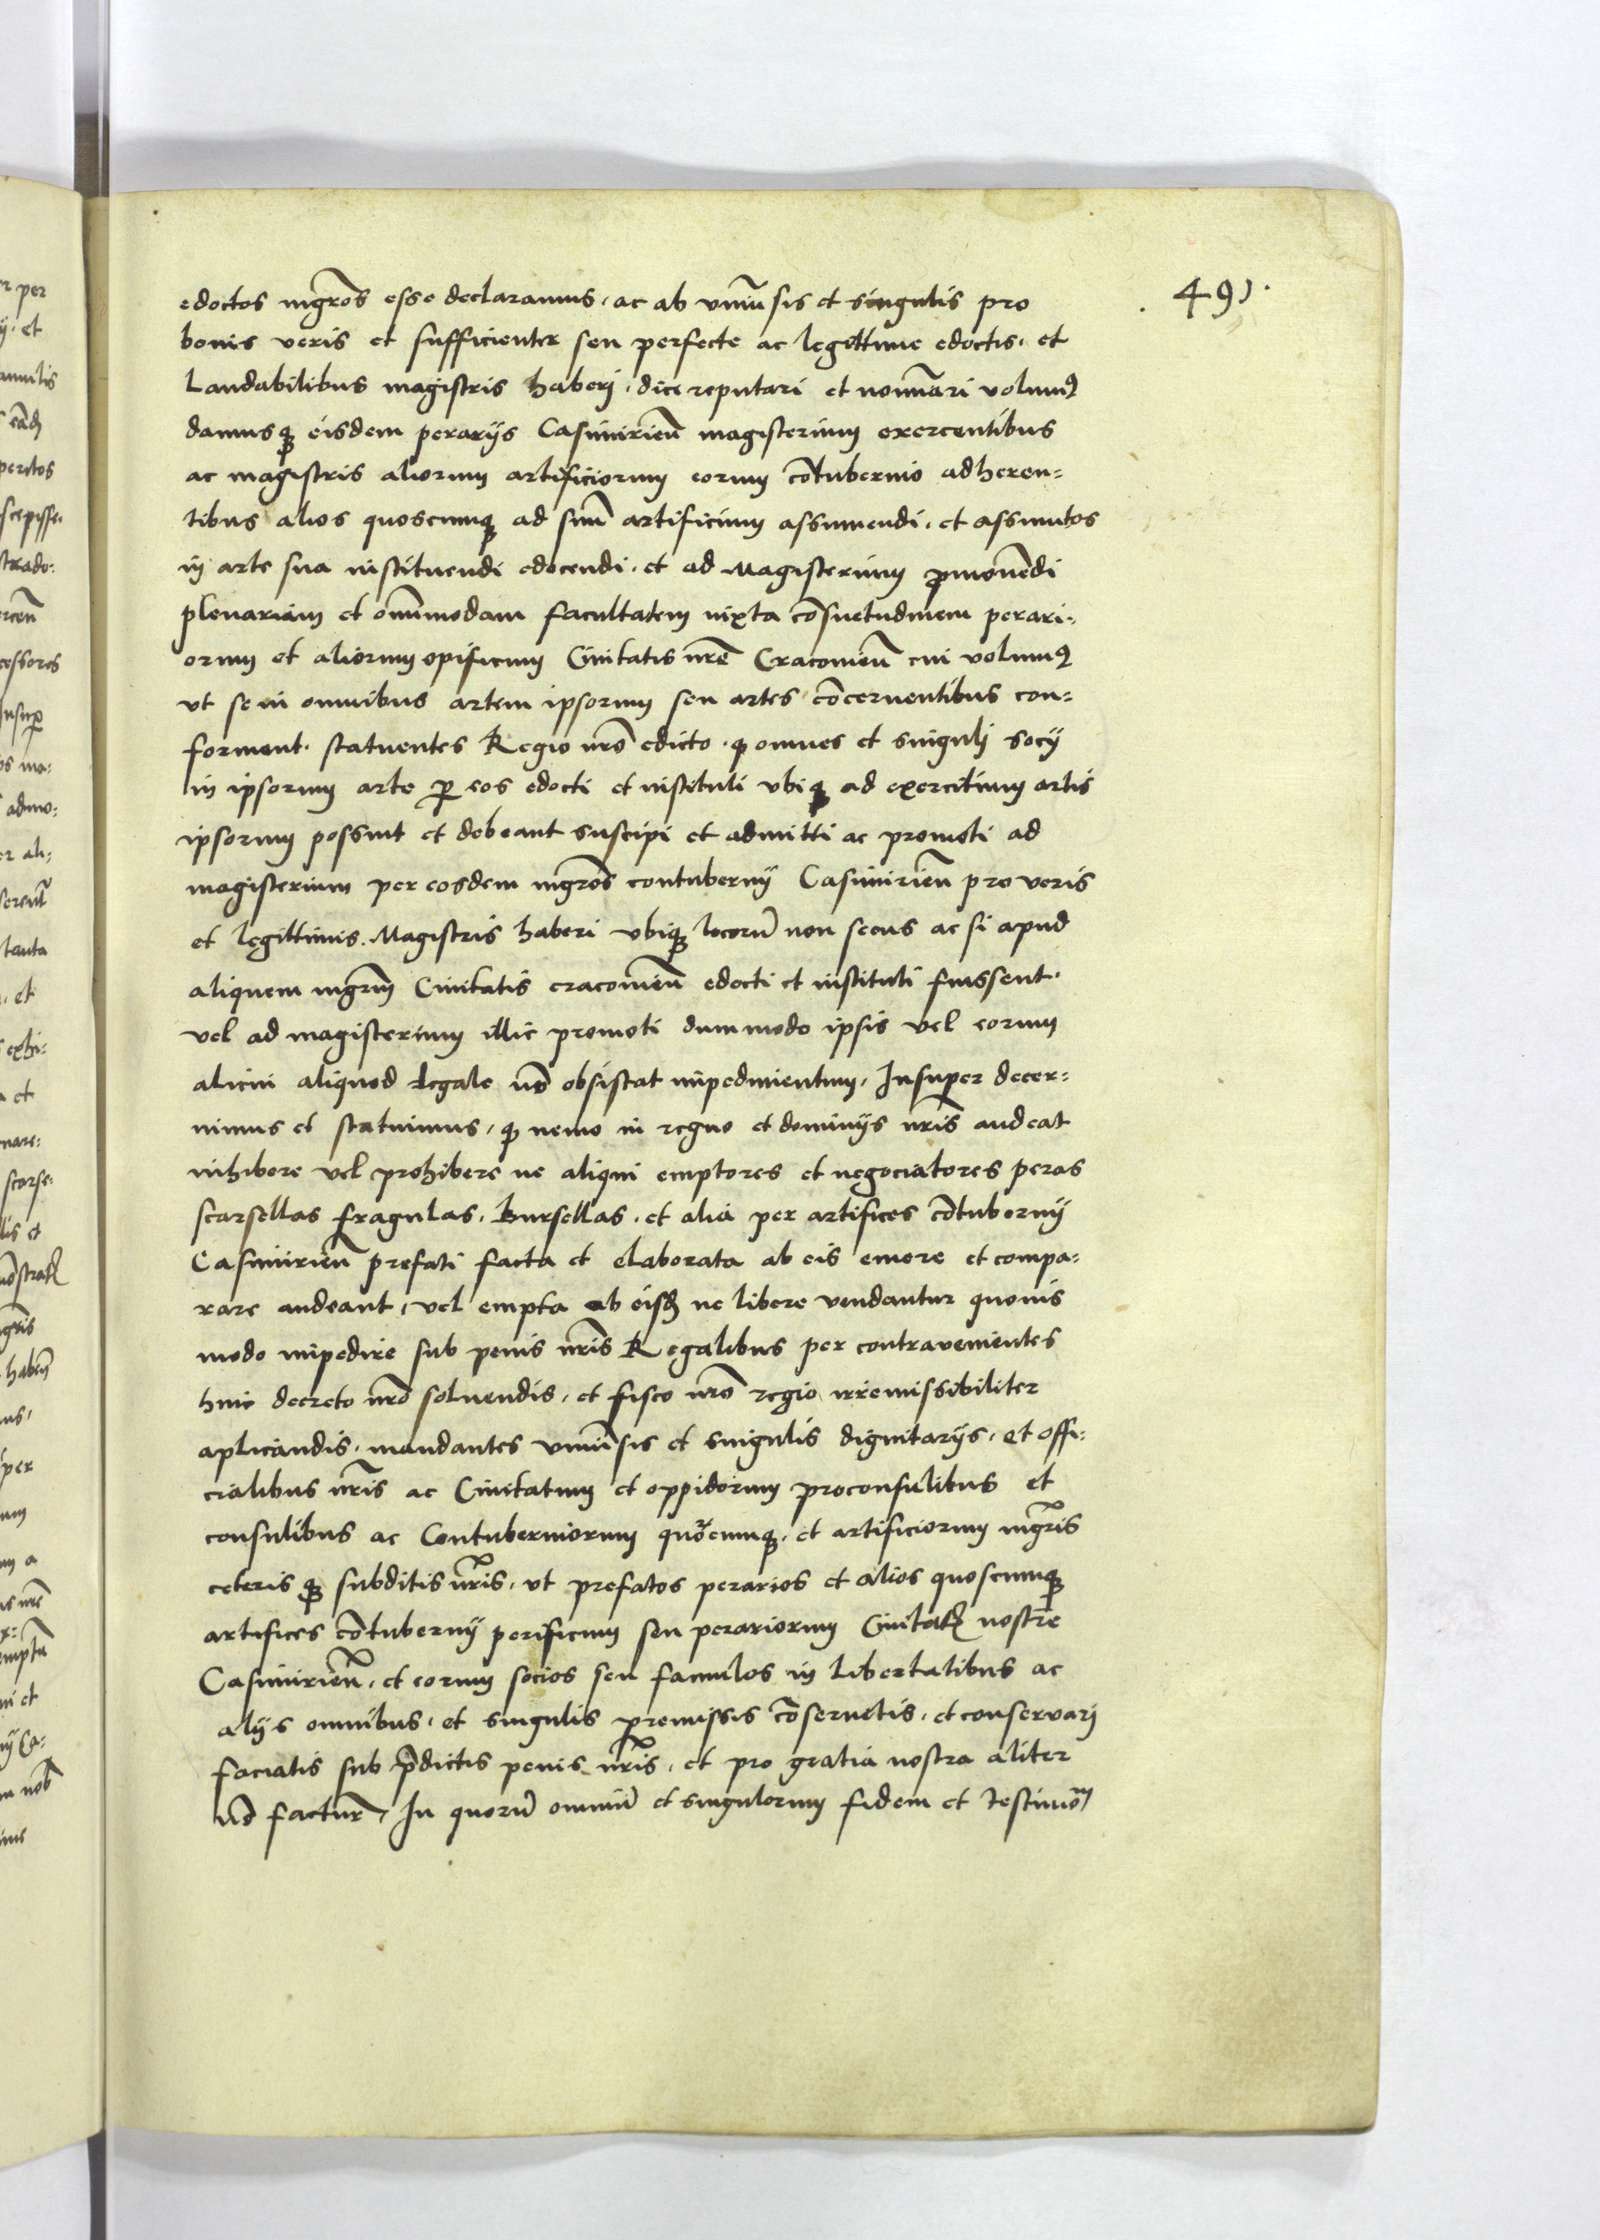 491.
edoctos mgr̃os esse declaramus, ac ab vniũsis et singulis pro
bonis veris et sufficienter seu perfecte ac legittime edoctis, et
Laudabilibus magistris haberi, dici reputari et nomĩari volumꝰ
damusqꝫ eisdem perarijs Casimirieñ magisterium exercentibus
ac magistris aliorum artificiorum eorum cõtubernio adheren=
tibus alios quoscumqꝫ ad suũ artificium assumendi, et assumtos
in arte sua instituendi edocendi, et ad Magisterium ꝓmouẽdi
plenariam et omĩmodam facultatem iuxta cõsuetudinem perari=
orum et aliorum opificum Ciuitatis nr̃e Cracouieñ cui volumꝰ
vt se in omnibus artem ipsorum seu artes cõcernentibus con=
forment. statuentes Regio nr̃o edicto. ꝙ omnes et singuli socij
in ipsorum arte ꝑ eos edocti et instituti vbiqꝫ ad exercitium artis
ipsorum possint et debeant suscipi et admitti ac promoti ad
magisterium per eosdem mgr̃os contubernij Casimirieñ pro veris
et legittimis Magistris haberi vbiqꝫ locorũ non secus ac si apud
aliquem mgrm̃ Ciuitatis cracouieñ edocti et instituti fuissent.
vel ad magisterium illic promoti dummodo ipsis vel eorum
alicui aliquod legale nõ obsistat impedimentum, Insuper decer=
nimus et statuimus, ꝙ nemo in regno et dominijs nr̃is audeat
inhibere vel prohibere ne aliqui emptores et negociatores peras
scarsellas fragulas, Bursellas, et alia per artifices cõtubernij
Casimirieñ prefati facta et elaborata ab eis emere et compa=
rare audeant, vel empta ab eisdẽ ne libere vendantur quouis
modo impedire sub penis nr̃is Regalibus per contravenientes
huic decreto nr̃o soluendis, et fisco nr̃o regio irremissibiliter
aplicandis, mandantes vniũsis et singulis dignitarijs, et offi=
cialibus nr̃is ac Ciuitatum et oppidorum proconsulibus et
consulibus ac Contuberniorum quor̃cumqꝫ, et artificiorum mgr̃is
ceterisqꝫ subditis nr̃is, vt prefatos perarios et alios quoscumqꝫ
artifices cõtubernij perificum seu perariorum Ciuitatꝭ nostre
Casimirieñ, et eorum socios seu famulos in libertatibus ac
alijs omnibus, et singulis premissis cõseruetis, et conservari
faciatis sub p̃dictis penis nr̃is, et pro gratia nostra aliter
nõ facturj, In quorũ omniũ et singulorum fidem et testimoñ